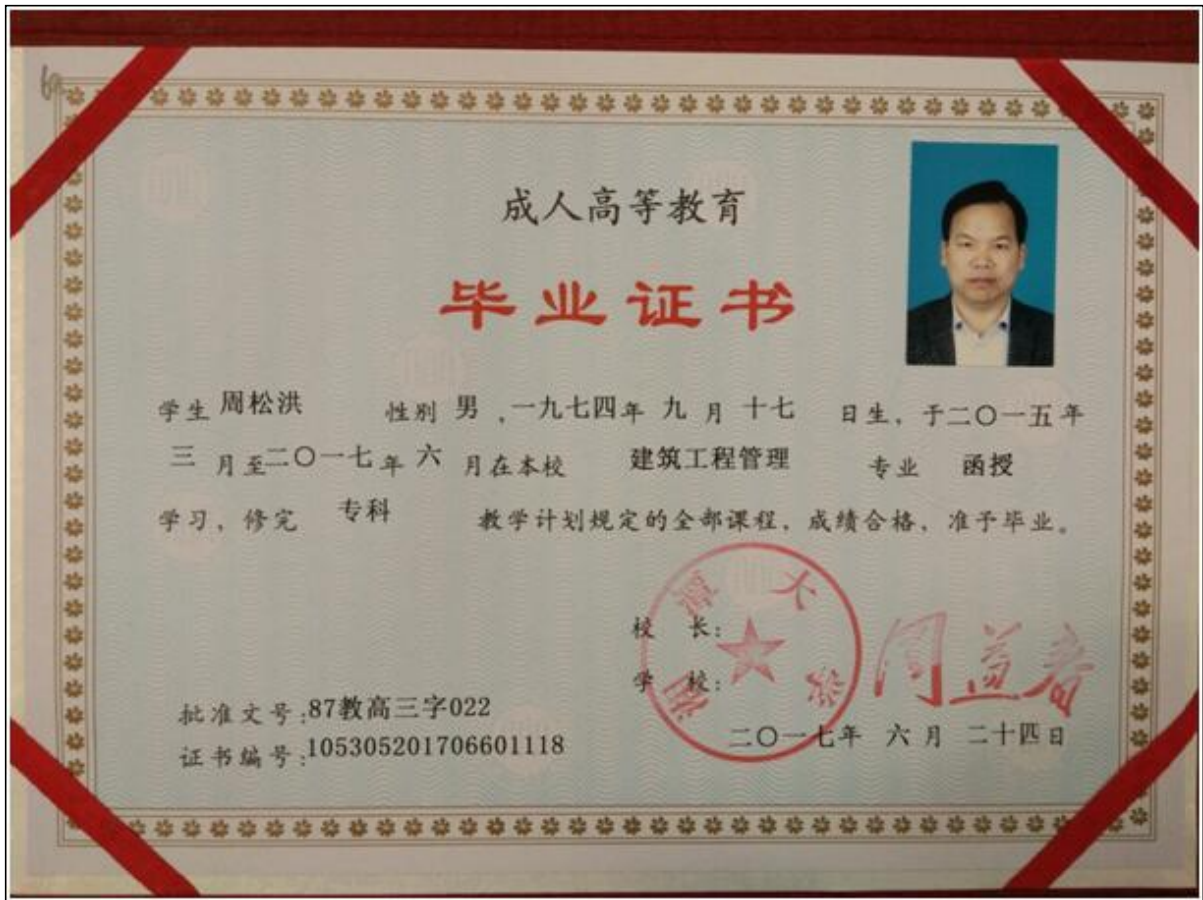 成人高等教育
毕业证书
学生 周松洪 性别 男 ,一九七四年 九 月 十七 日生,于二〇一五年
三 月至二〇一七年 六 月在本校 建筑工程管理 专业 函授
学习,修完 专科 教学计划规定的全部课程,成绩合格,准予毕业。
湘潭大学
校 长: 周益春
学 校:
批准文号:87教高三字022
二〇一七年 六 月 二十四日
证书编号:105305201706601118